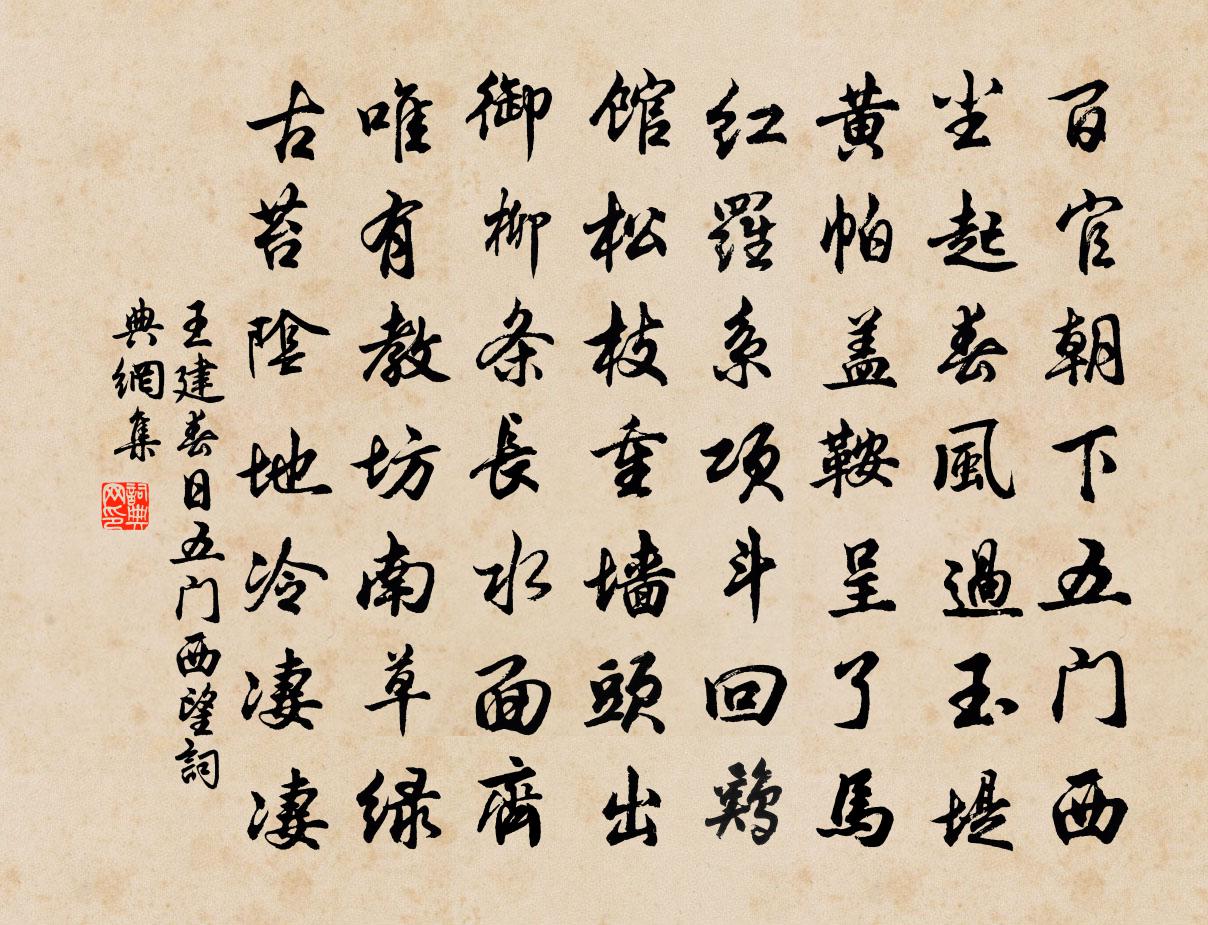 百官朝下五门西
尘起春風過玉堤
黄帕盖鞍呈了馬
红羅系项斗回鷄
馆松枝重墙頭出
御柳条長水面齊
唯有教坊南草绿
古苔陰地冷凄凄
王建春日五门西望詞
典網集
詞典网印